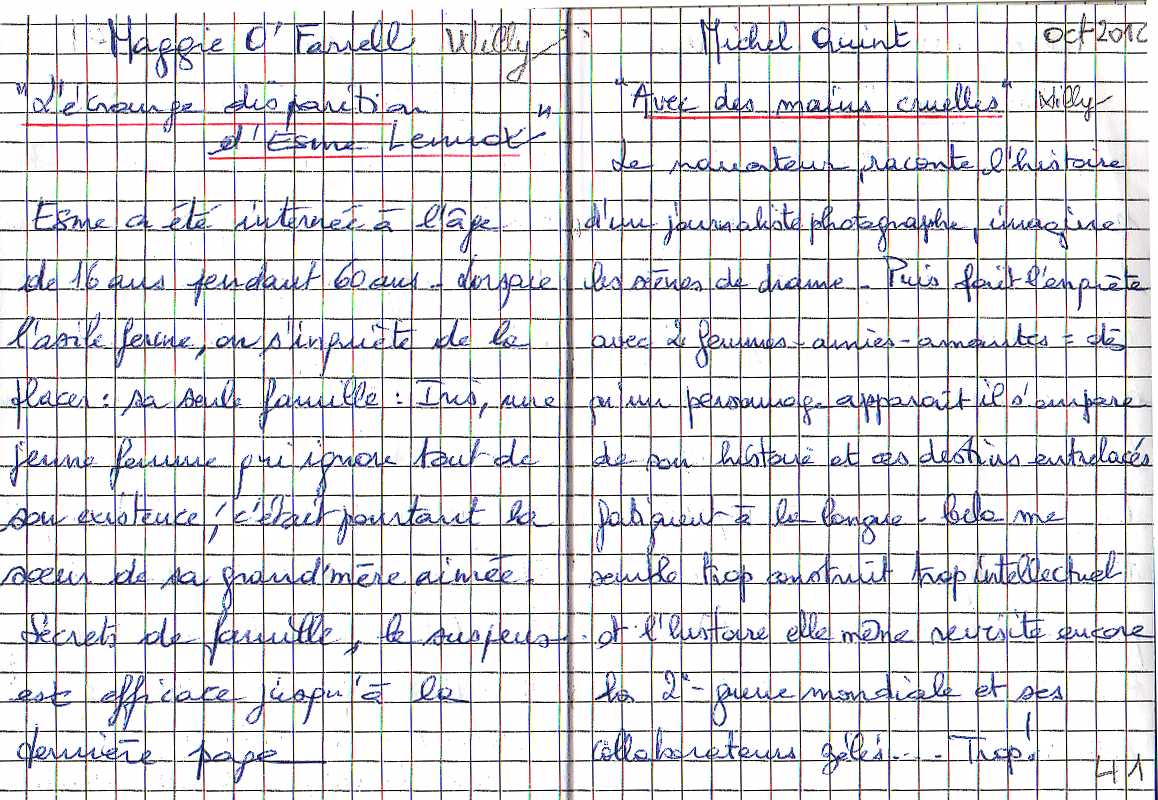 Maggie O'Farrell Willy
"L'étrange disparition
d'Esme Lennox"
Esme a été internée à l'âge
de 16 ans pendant 60 ans - Lorsque
l'asile ferme, on s'inquiète de la
placer : sa seule famille : Iris, une
jeune femme qui ignore tout de
son existence, c'était pourtant la
sœur de sa grand'mère aimée.
Secrets de famille, le suspens
est efficace jusqu'à la
dernière page
Michel Quint Oct 2012
"Avec des mains cruelles" Willy
Le narrateur, raconte l'histoire
d'un journaliste photographe, imagine
les scènes de drame - Puis fait l'enquète
avec 2 femmes - amies - amantes = dès
qu'un personnage apparait il s'empare
de son histoire et ces destins entrelacés
fatiguent à la longue - Cela me
semble trop construit trop intellectuel
et l'histoire elle même revisite encore
la 2e guerre mondiale et ses
collaborateurs zélés... Trop!
41